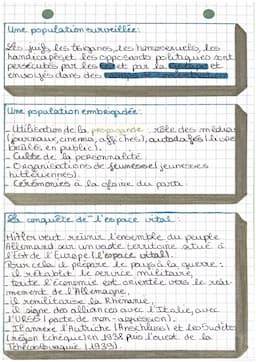 Une population surveillée:
Les juifs, les tsiganes, les homosexuels, les
handicapés et les opposants politiques sont
persécutés par les et par la et
envoyés dans des
Une population embrigadée:
- Utilisation de la propagande : rôle des médias
(journaux, cinéma, affiches), autodafés (livre
brûlés en public).
- Culte de la personnalité
- Organisations de jeunesse (jeunesses
hitlériennes).
- Cérémonies à la gloire du parti
La conquête de "l'espace vital":
Hitler veut réunir l'ensemble du peuple
Allemand sur un vaste territoire situé à
l'Est de l'Europe (l'espace vital).
Pour cela il prépare le pays à la guerre:
- il rétablit le service militaire,
- toute l'économie est orientée vers le réar-
mement de l'Allemagne,
- il remilitarise la Rhénanie,
- il signe des alliances avec l'Italie, avec
l'URSS (pacte de non-agression).
- Il annexe l'Autriche (Anschluss) et les Sudètes
(région tchèque) en 1938 puis l'ouest de la
Tchécoslovaquie (1939).